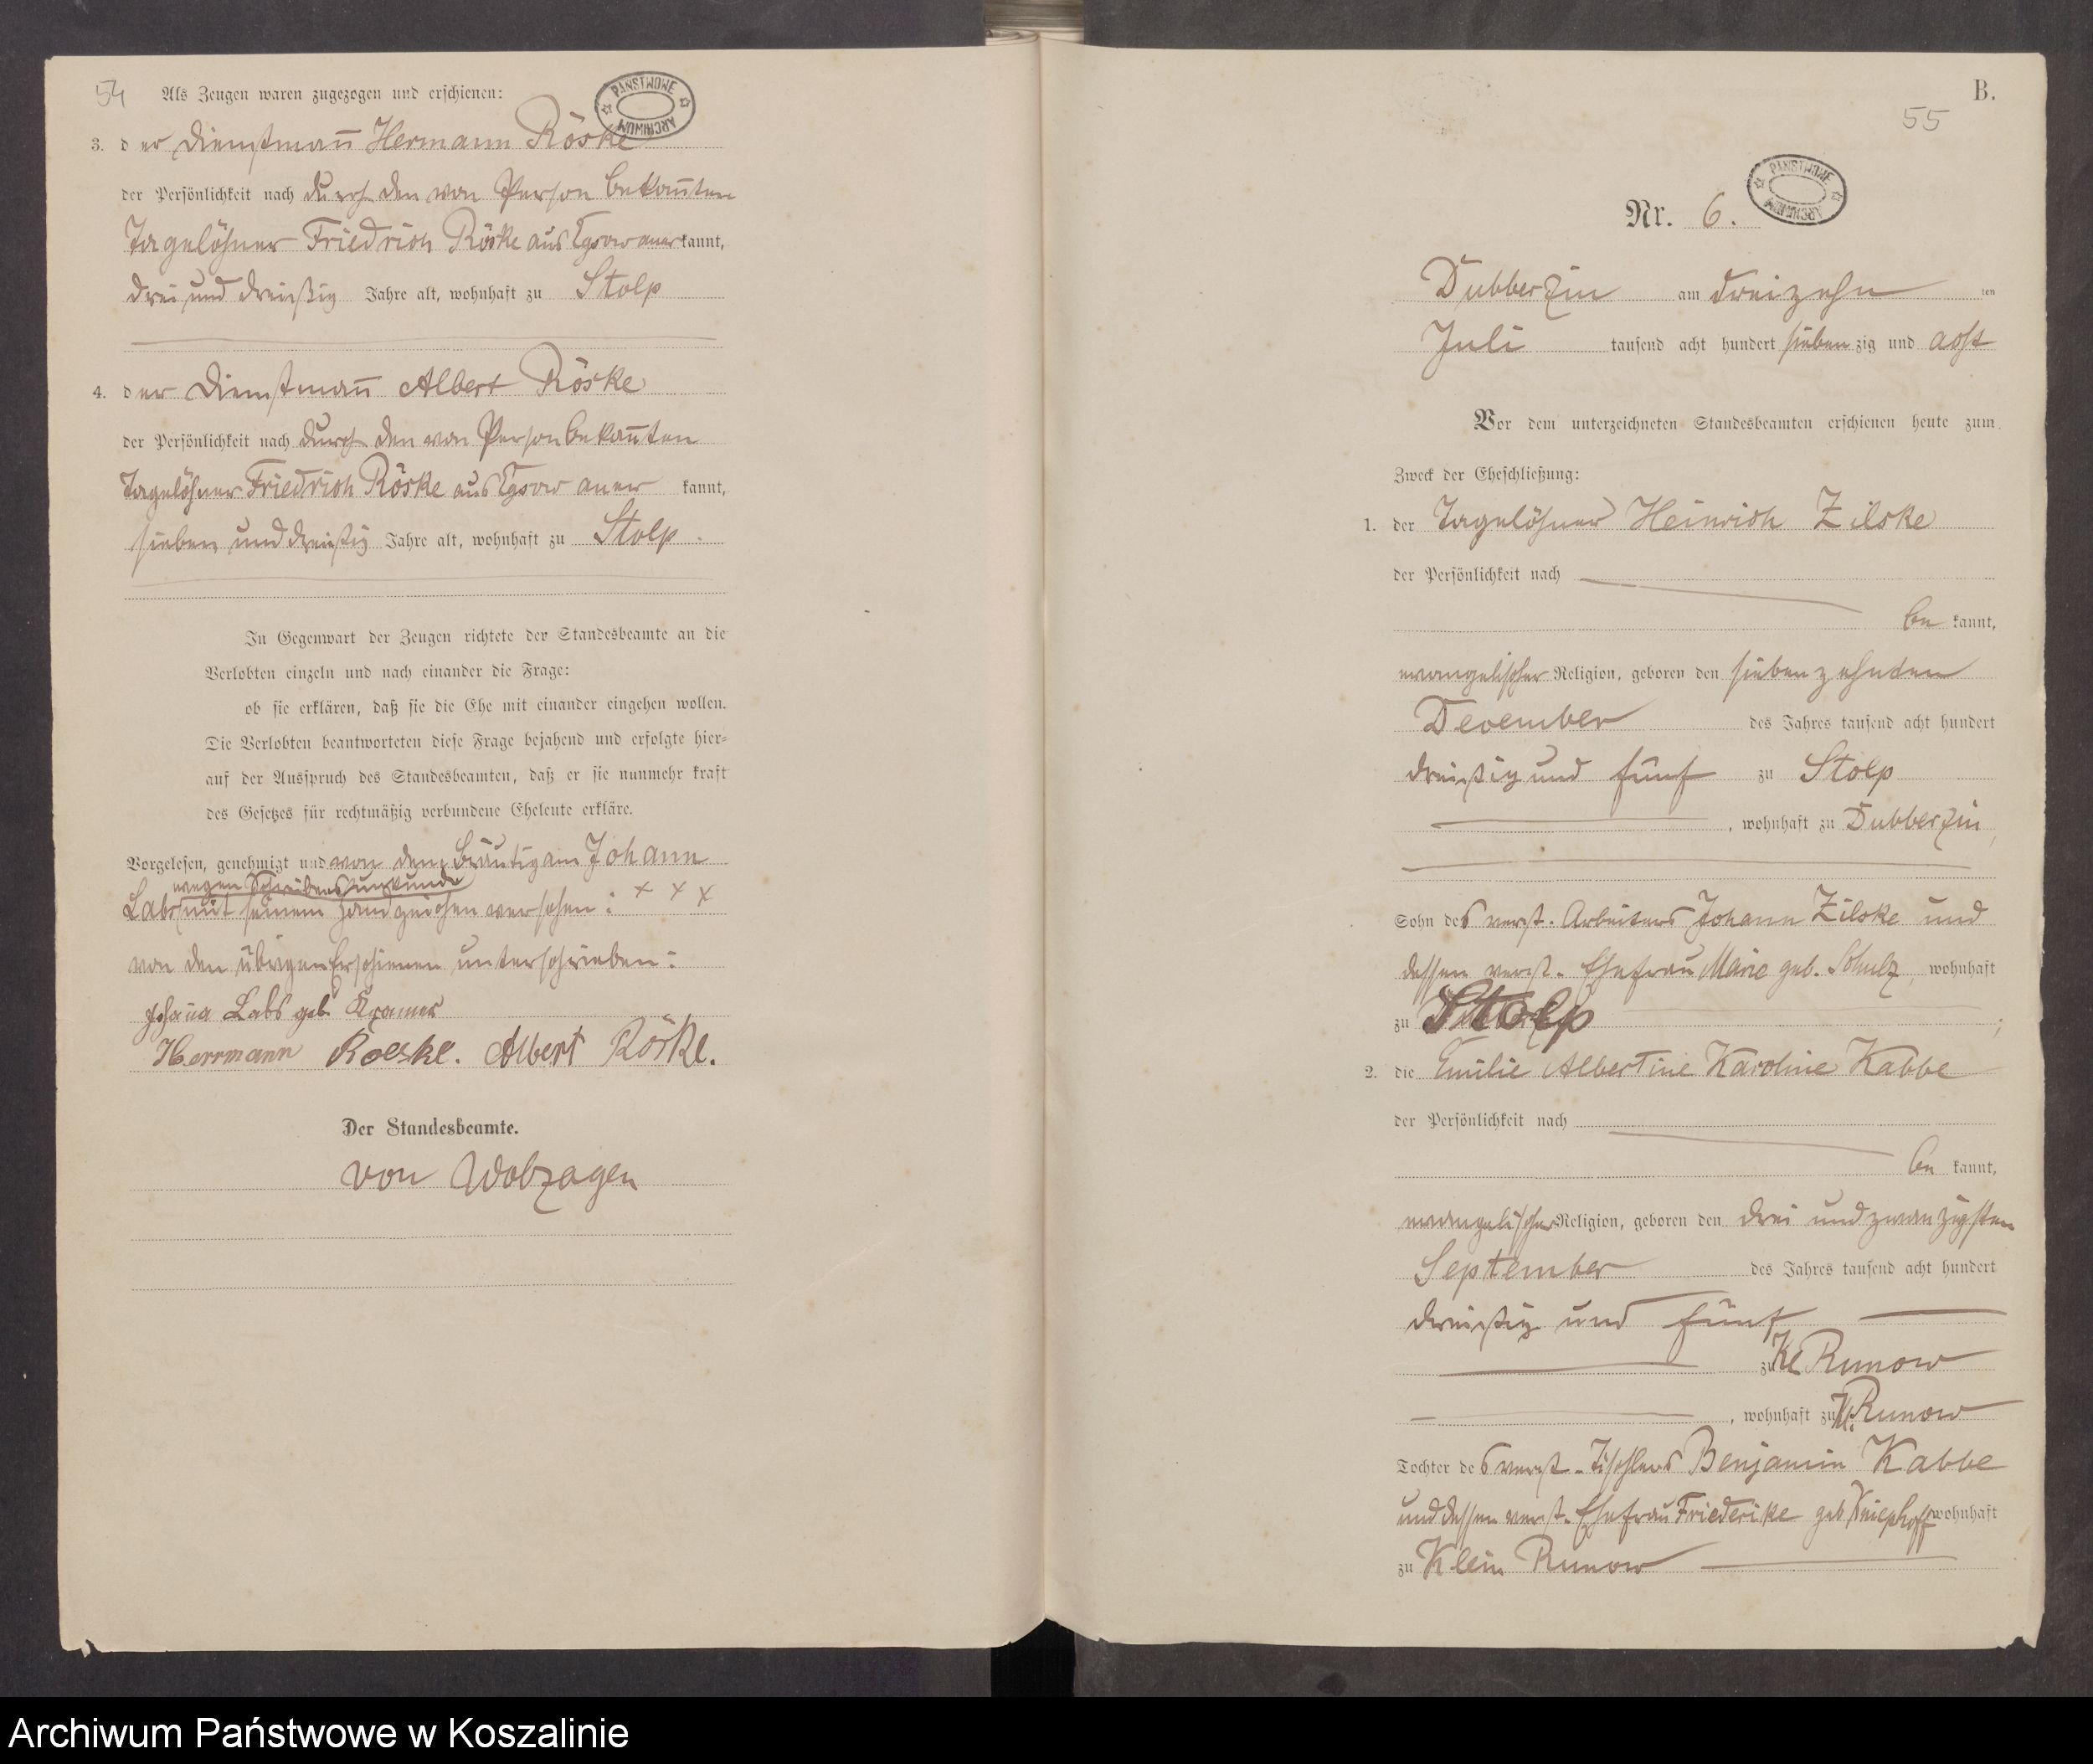 54
Als Zeugen waren zugezogen und erschienen:
PANSTWOWE ARCHIWUM
3. der Dienstmañ Hermann Röske
der Persönlichkeit nach durch den von Person bekañten
Tagelöhner Friedrich Röske aus Egsow anerkannt,
drei und dreißig Jahre alt, wohnhaft zu Stolp
4. der Dienstmañ Albert Röske
der Persönlichkeit nach durch den von Person bekañten
Tagelöhner Friedrich Röske aus Egsow aner kannt,
sieben und dreißig Jahre alt, wohnhaft zu Stolp.
In Gegenwart der Zeugen richtete der Standesbeamte an die
Verlobten einzeln und nach einander die Frage:
ob sie erklären, daß sie die Ehe mit einander eingehen wollen.
Die Verlobten beantworteten diese Frage bejahend und erfolgte hier=
auf der Ausspruch des Standesbeamten, daß er sie nunmehr kraft
des Gesetzes für rechtmäßig verbundene Eheleute erkläre.
Vorgelesen, genehmigt und von dem Bräutigam Johann
wegen Schreibensunkunde
Labs mit seinem Handzeichen versehen: + + +
von den übrigen Erschienen unterschrieben:
Johana Labs geb Kramer
Herrmann Roeske. Albert Röske.
Der Standesbeamte.
von Wobzagen
B.
55
PANSTWOWE ARCHIWUM
Nr. 6.
Dubberzin am dreizehn ten
Juli tausend acht hundert siebenzig und acht
Vor dem unterzeichneten Standesbeamten erschienen heute zum
Zweck der Eheschließung:
1. der Tagelöhner Heinrich Zilske
der Persönlichkeit nach
be kannt,
evangelischer Religion, geboren den siebenzehnten
December des Jahres tausend acht hundert
dreißig und fünf zu Stolp
, wohnhaft zu Dubberzin
Sohn des verst. Arbeiters Johann Zilske und
dessen verst. Ehefrau Marie geb. Schulz, wohnhaft
zu Stolp ;
2. die Emilie Albertine Karoline Kabbe
der Persönlichkeit nach
be kannt,
evangelischer Religion, geboren den drei und zwanzigsten
September des Jahres tausend acht hundert
dreißig und fünf
zu Kl Runow
, wohnhaft zu Kl. Runow
Tochter des verst. Tischlers Benjamin Kabbe
und dessen verst. Ehefrau Friederike geb Kniephoff wohnhaft
zu Klein Runow
Archiwum Państwowe w Koszalinie